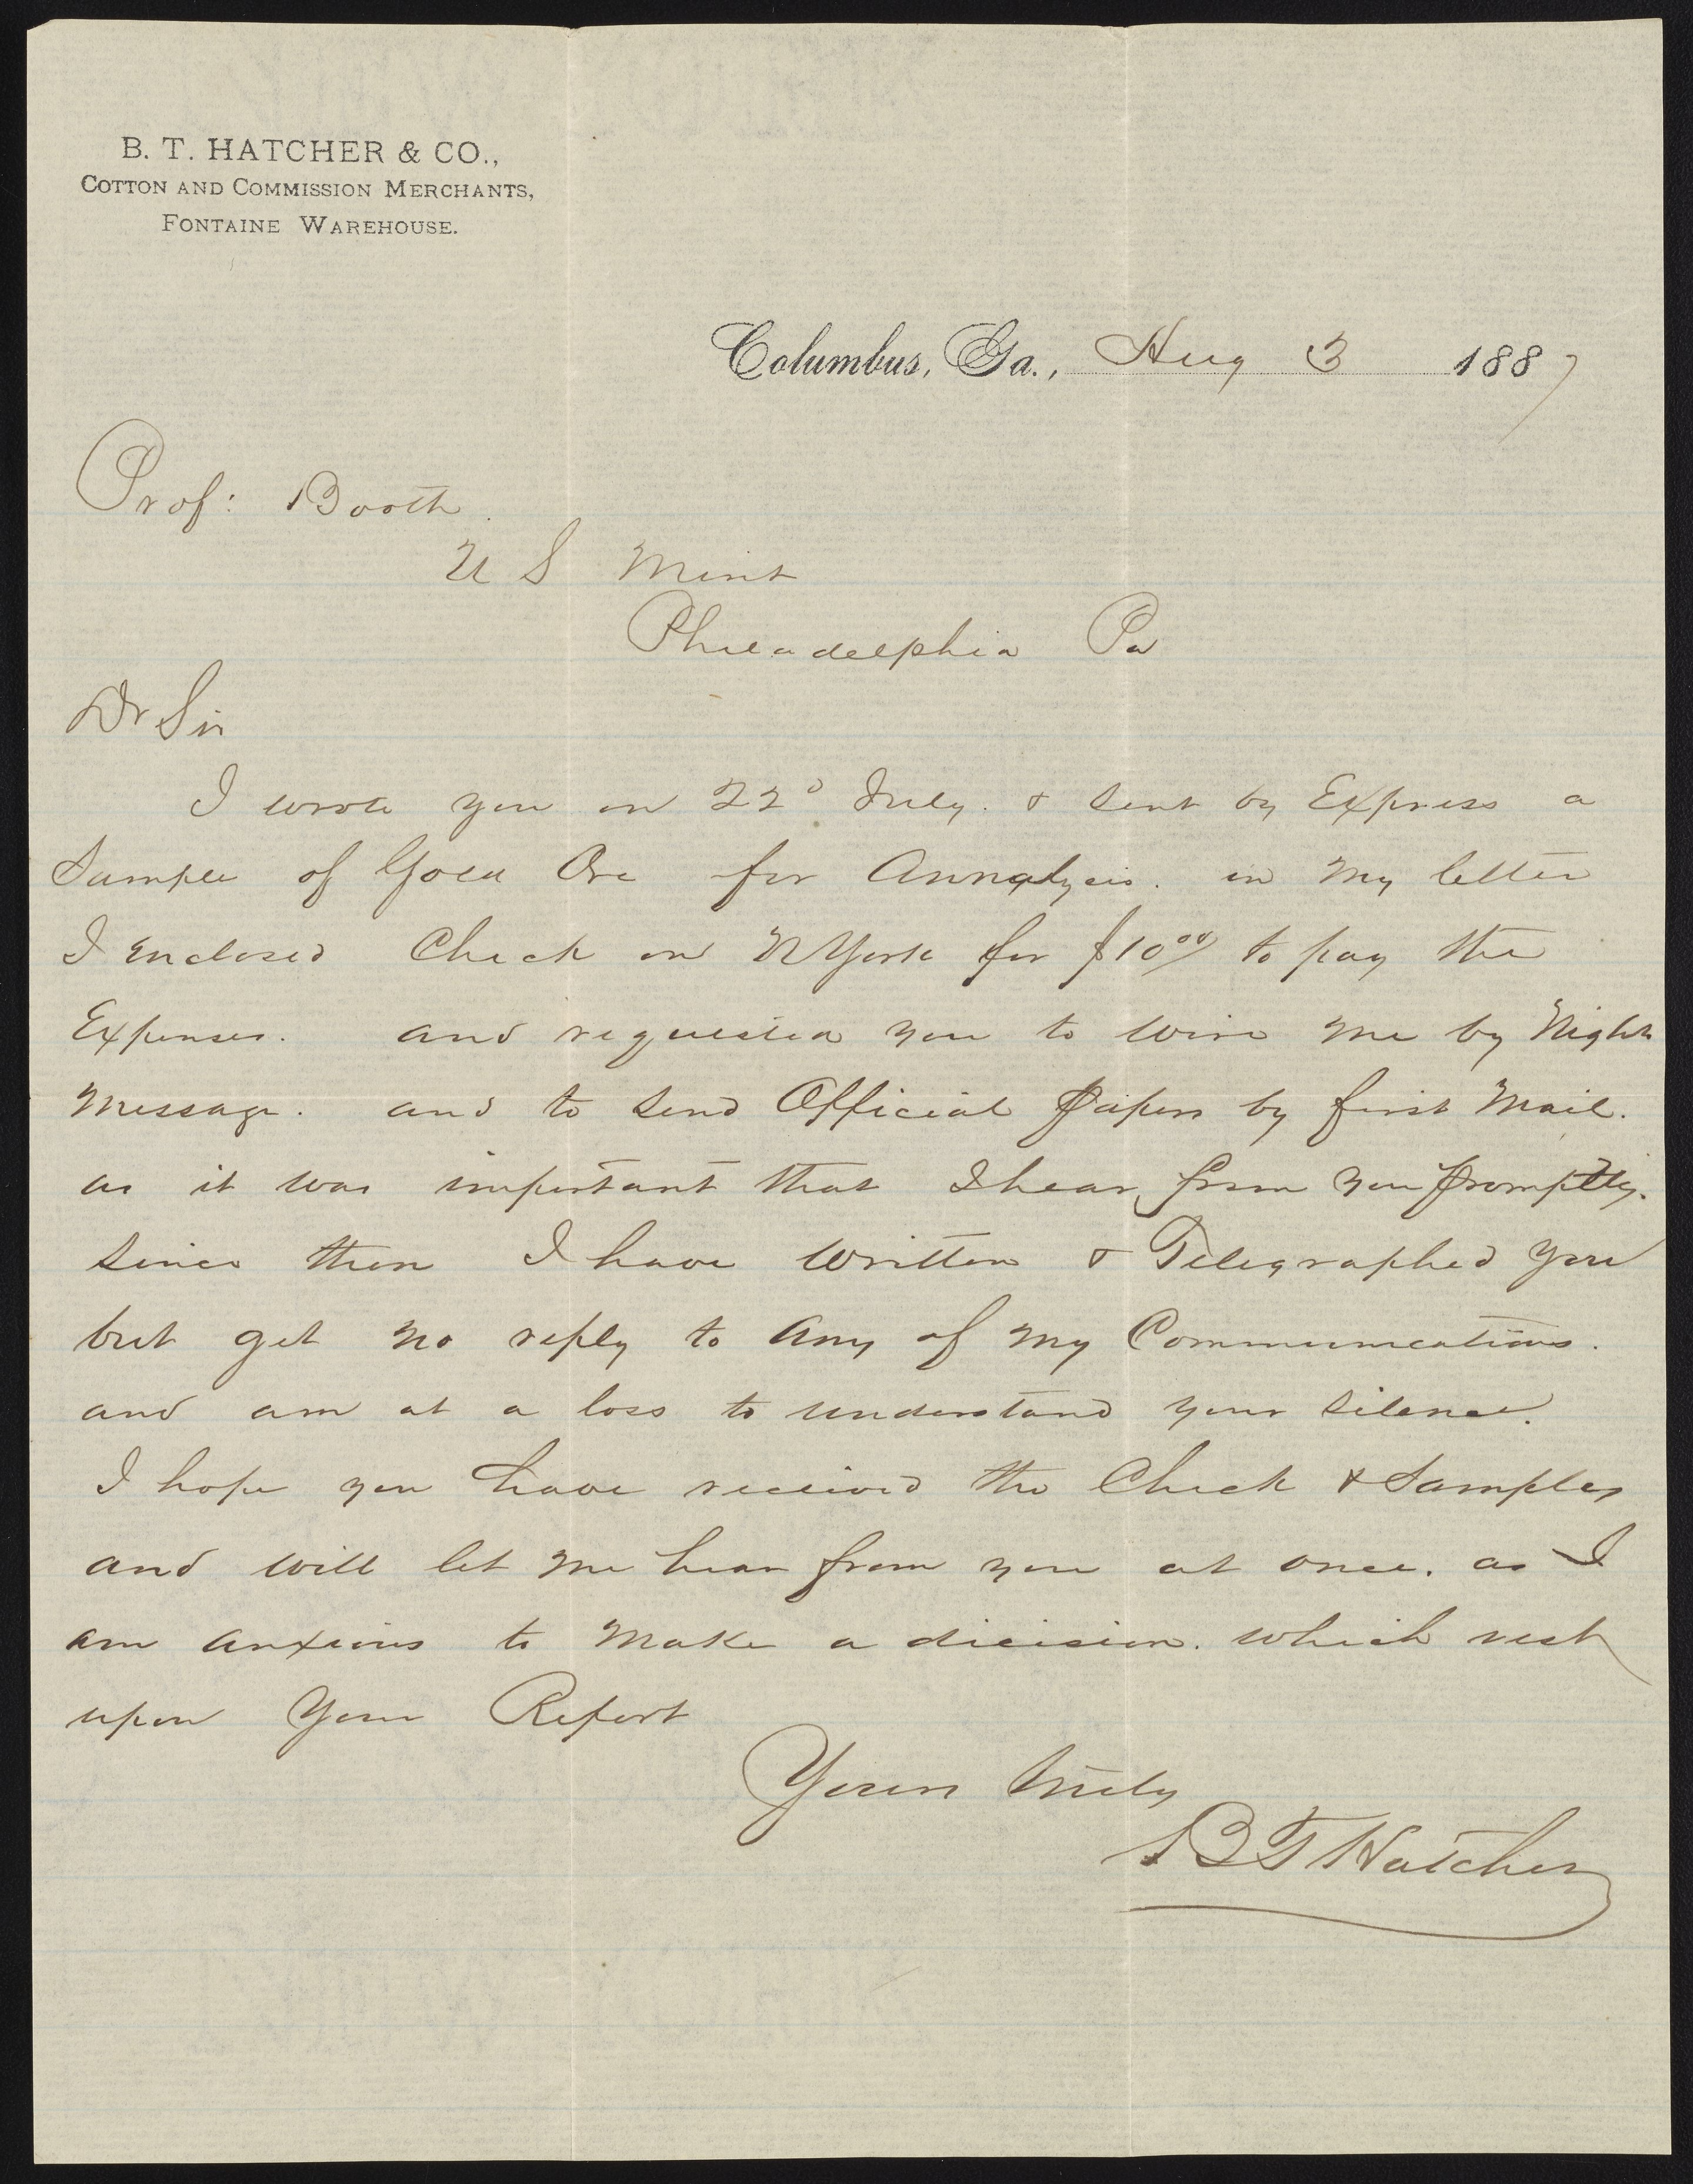 B. T. HATCHER & CO.,
COTTON AND COMMISSION MERCHANTS,
FONTAINE WAREHOUSE.
Columbus, Ga., Aug 3 1887
Prof: Booth.
U S Mint
Philadelphia Pa
Dr Sir
I wrote you on 22d July. & sent by Express a
Sample of Gold Ore for Annalysis. in my letter
I Enclosed Check on N York for $10 00/ to pay the
Expenses. and requested you to wire me by Night
Message. and to send Official Papers by first Mail.
as it was important that I hear from you promptly.
since then I have written & Telegraphed you
but get no reply to any of my Communications.
and am at a loss to understand your silence.
I hope you have received the Check & Samples
and will let me hear from you at once. as I
am anxious to make a dicision. which rest
upon Your Report
Yours truly
B T Hatcher